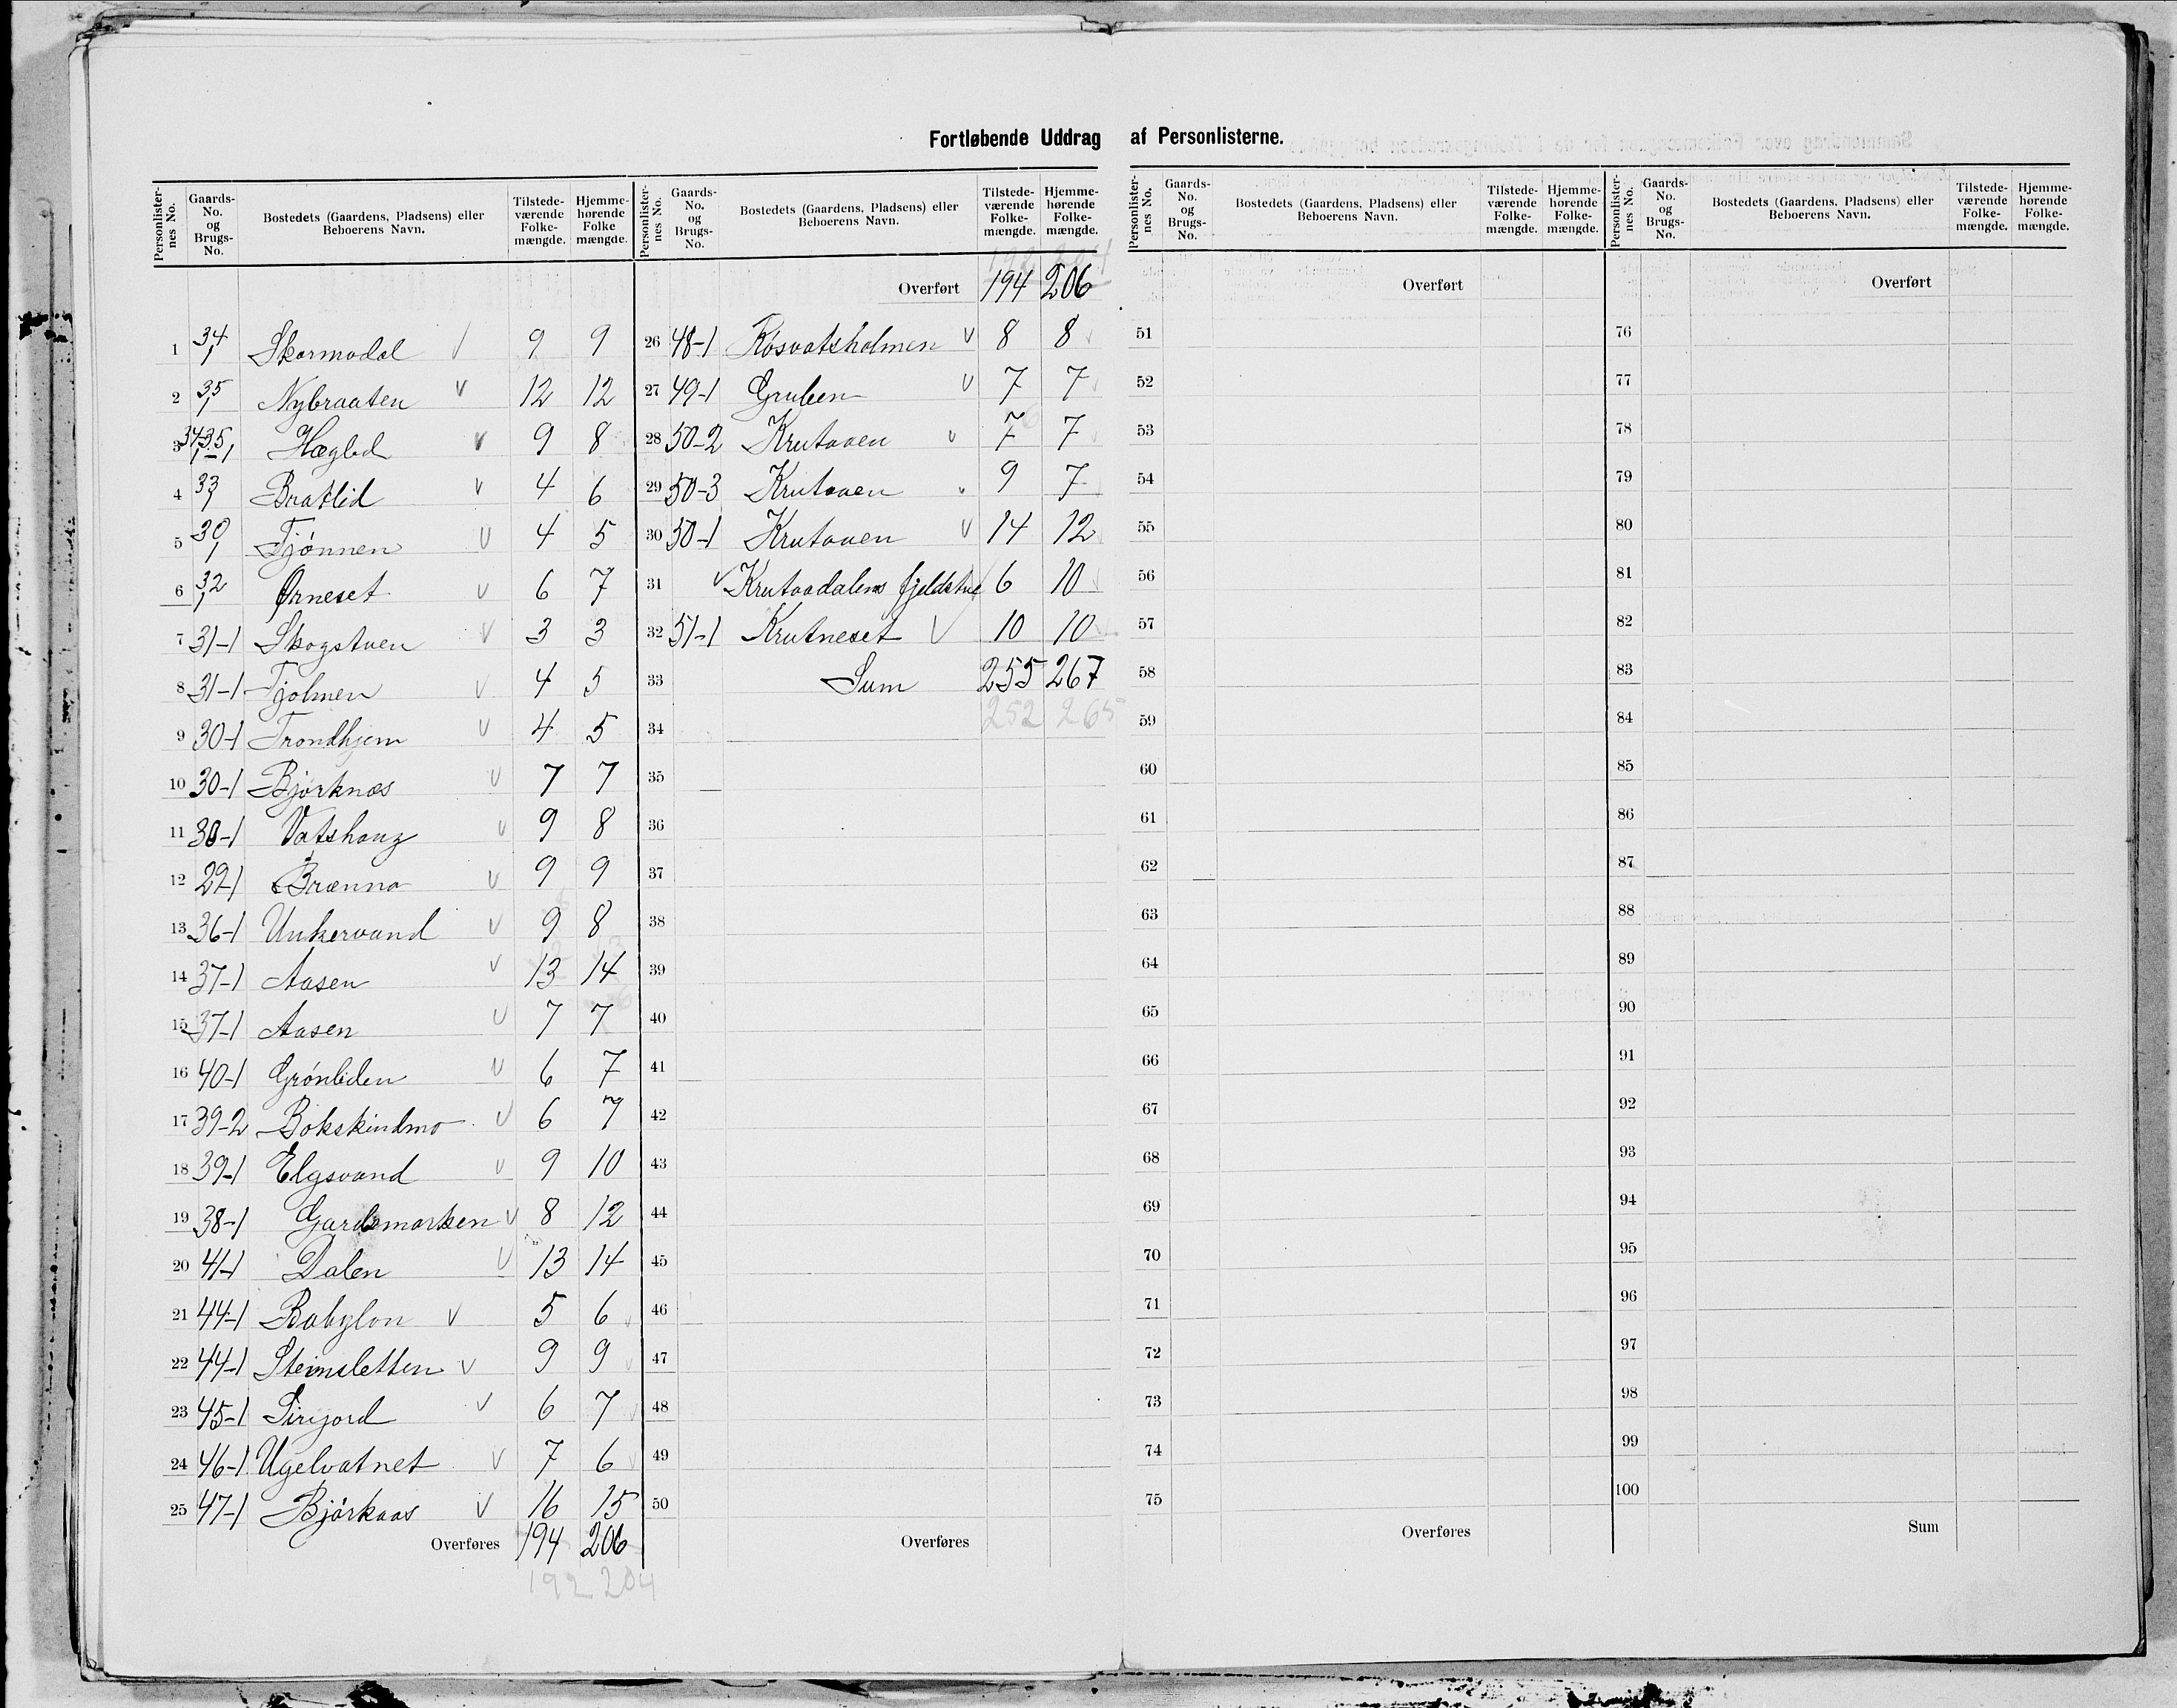 Fortløbende Uddrag af Personlisterne.
Personlister-nes No. Gaards-No. og Brugs-No. Bostedets (Gaardens, Pladsens) eller Beboerens Navn. Tilstede-værende Folke-mængde. Hjemme-hørende Folke mængde.
1 34/1 Skarmodal 9 9
2 35/1 Nybraaten 12 12
3 34/1 35/1 Hæglid 9 8
4 33/1 Bratlid 4 6
5 30/1 Tjønnen 4 5
6 32/1 Ørneset 6 7
7 31-1 Skogstuen 3 3
8 31-1 Tjolmen 4 5
9 30-1 Trondhjem 4 5
10 30-1 Bjørknæs 7 7
11 30-1 Vatshaug 9 8
12 29-1 Brænna 9 9
13 36-1 Unkervand 9 8
14 37-1 Aasen 13 14
15 37-1 Aasen 7 7
16 40-1 Grønliden 6 7
17 39-2 Bokskindmo 6 7
18 39-1 Elgsvand 9 10
19 38-1 Gardsmarken 8 12
20 41-1 Dalen 13 14
21 44-1 Babylon 5 6
22 44-1 Steinsletten 9 9
23 45-1 Sirijord 6 7
24 46-1 Ugelvatnet 7 6
25 47-1 Bjørkaas 16 15
Overføres 194 206
192 204
Personlister-nes No. Gaards-No. og Brugs-No. Bostedets (Gaardens, Pladsens) eller Beboerens Navn. Tilstede-værende Folke-mængde. Hjemme-hørende Folke-mængde.
192 204
Overført 194 206
26 48-1 Røsvatsholmen 8 8
27 49-1 Gruben 7 7
28 50-2 Krutaaen 7 7
29 50-3 Krutaaen 9 7
30 50-1 Krutaaen 14 12
31 Krutaadalens fjeldstue 6 10
32 51-1 Krutneset 10 10
33 Sum 255 267
252 265
34
35
36
37
38
39
40
41
42
43
44
45
46
47
48
49
50
Overføres
Personlister-nes No. Gaards-No. og Brugs-No. Bostedets (Gaardens, Pladsens) eller Beboerens Navn. Tilstede-værende Folke-mængde. Hjemme-hørende Folke-mængde.
Overført
51
52
53
54
55
56
57
58
59
60
61
62
63
64
65
66
67
68
69
70
71
72
73
74
75
Overføres
Personlister-nes No. Gaards-No. og Brugs-No. Bostedets (Gaardens, Pladsens) eller Beboerens Navn. Tilstede-værende Folke-mængde. Hjemme-hørende Folke-mængde.
Overført
76
77
78
79
80
81
82
83
84
85
86
87
88
89
90
91
92
93
94
95
96
97
98
99
100
Sum